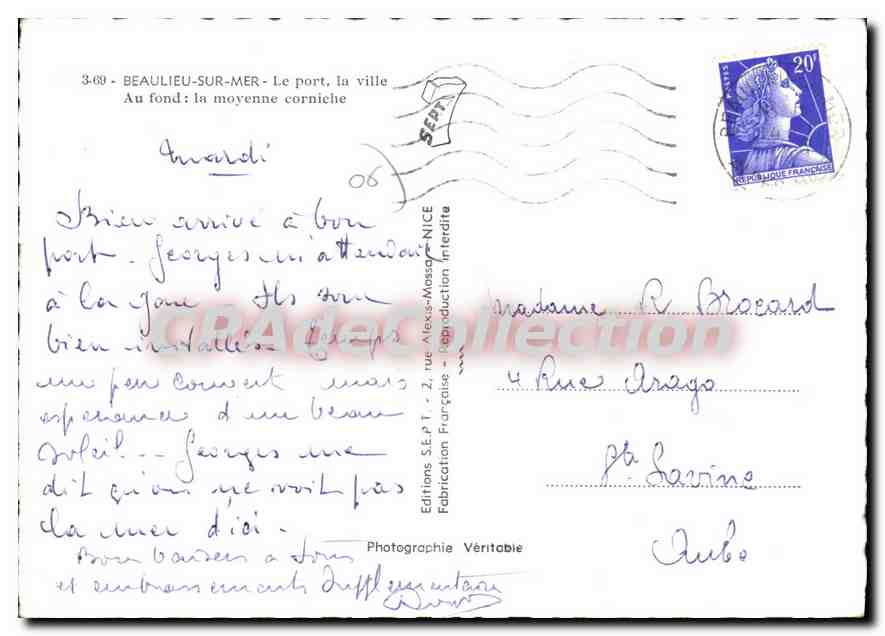 3-69 - BEAULIEU-SUR-MER - Le port, la ville
Au fond : la moyenne corniche
mardi
06
Bien arrivé à bon
port - Georges m'attendait
à la gare - Ils sont
bien installés. Temps
un peu couvert mais
esperance d'un beau
soleil - - Georges me
dit qu'on ne voit pas
la mer d'ici -
Bons baisers a tous
et embrassements supplementaire
Editions S.E.P.T. - 2, rue Alexis-Mossa - NICE
Fabrication Française - Reproduction Interdite
Photographie Véritable
SEPT
POSTES
20F
REPUBLIQUE FRANÇAISE
madame R Brocard
4 Rue Arago
Ste Savine
Aube
CPAdeCollection